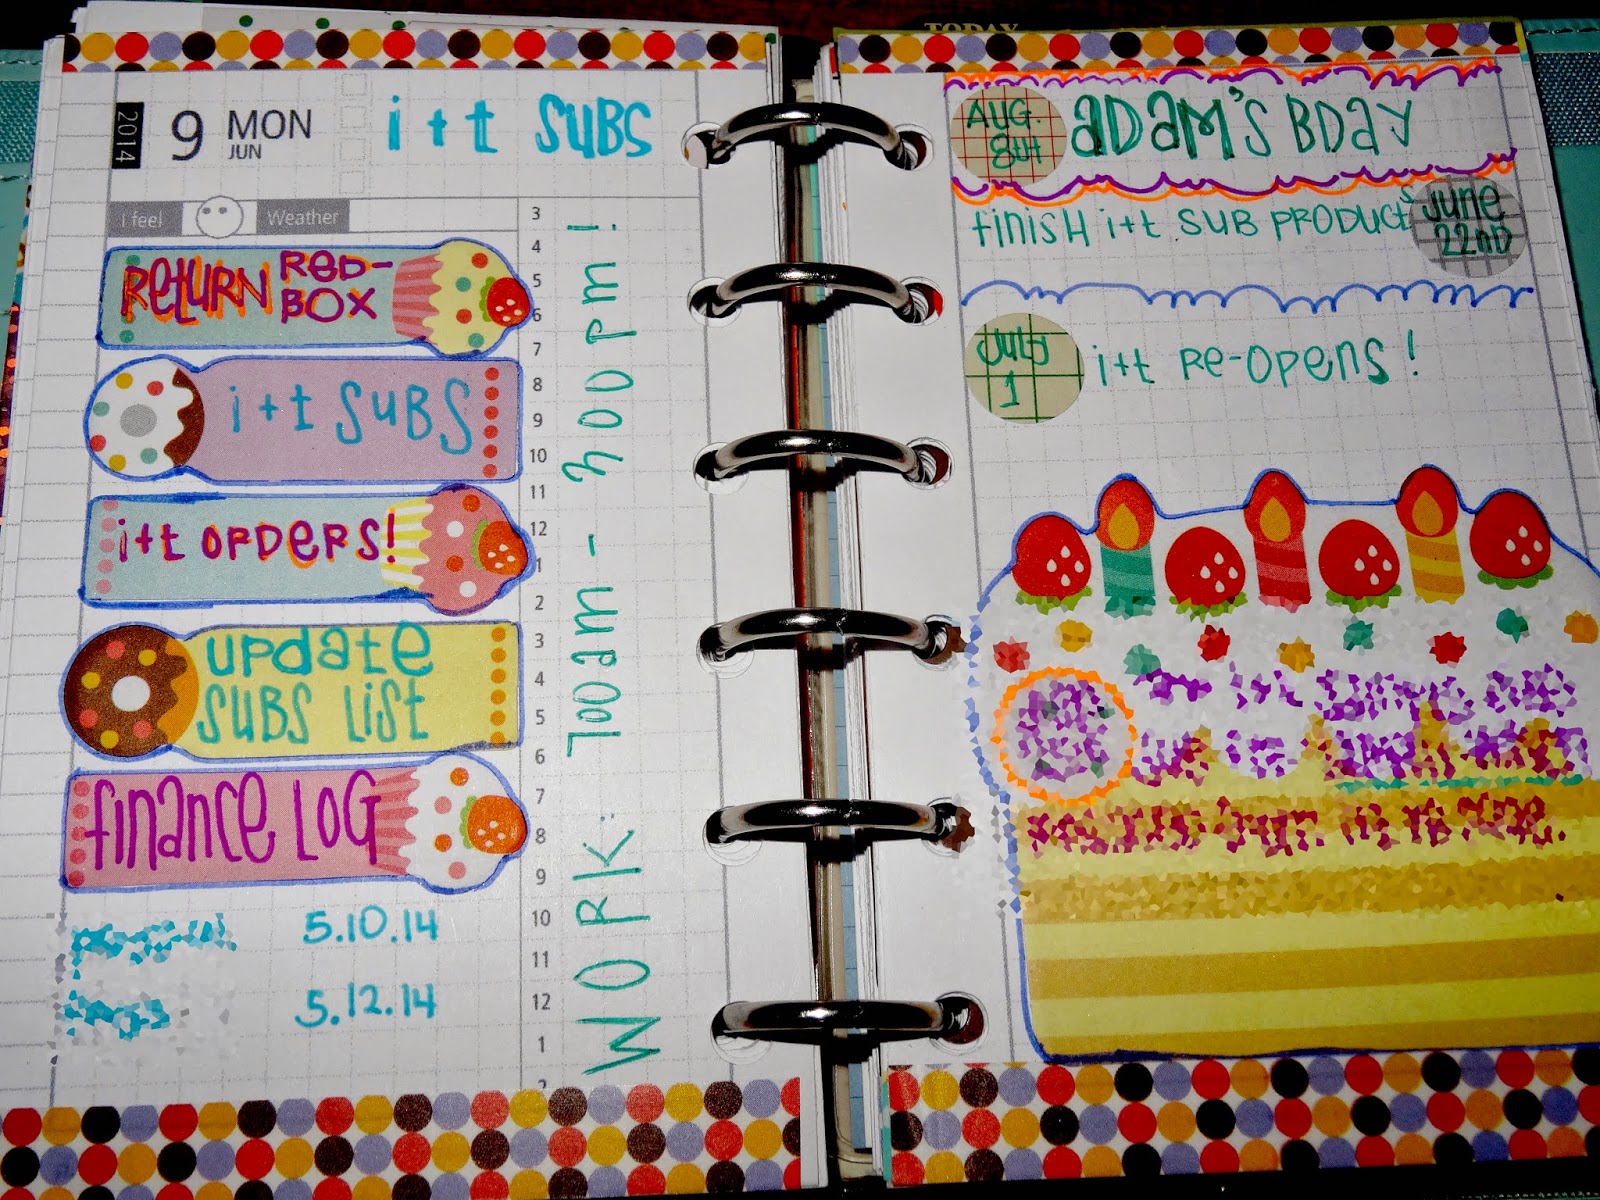 2014
9 MON
JUN
i + t SUBS
I feel
Weather
RETURN RED-
BOX
i + t SUBS
i+t ORDERS!
UPDATE
SUBS LIST
FINANCE LOG
5.10.14
5.12.14
3
4
5
6
7
8
9
10
11
12
1
2
3
4
5
6
7
8
9
10
11
12
1
2
WORK: 700am - 300pm!
TODAY
AUG.
8TH
ADAM'S BDAY
FINISH i+t SUB PRODUCTS
June
22ND
JULY
1
i+t RE-OPENS!